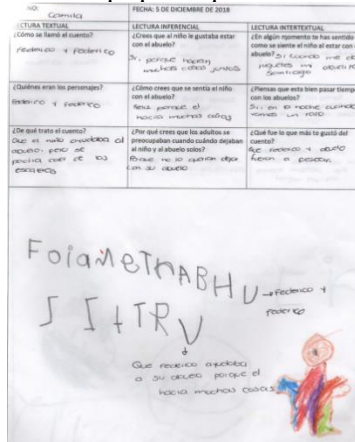 NO: Camila
FECHA: 5 DE DICIEMBRE DE 2018
LECTURA TEXTUAL
LECTURA INFERENCIAL
LECTURA INTERTEXTUAL
¿Cómo se llamó el cuento?
Federico y Federico
¿Crees que al niño le gustaba estar
con el abuelo?
Si, porque hacían
muchas cosas juntos
¿En algún momento te has sentido
como se siente el niño al estar con
abuelo? Si cuando me da
juguetes mi abuelito
Santiago
¿Quiénes eran los personajes?
Federico y Federico
¿Cómo crees que se sentía el niño
con el abuelo?
feliz porque el
hacia muchas cosas
¿Piensas que esta bien pasar tiempo
con los abuelos?
Si, en la noche cuando
vamos un rato
¿De qué trato el cuento?
Que el niño ayudaba al
abuelo, pero se
podía caer de las
escaleras
¿Por qué crees que los adultos se
preocupaban cuando cuándo dejaban
al niño y al abuelo solos?
Porque no lo querían dejar
con su abuelo
¿Qué fue lo que más te gustó del
cuento?
Que Federico y abuelo
fueron a pescar
FoiaMeTMABHU
→ Federico y
Federico
JI+TRV
Que federico ayudaba
a su abuelo porque el
hacia muchas cosas